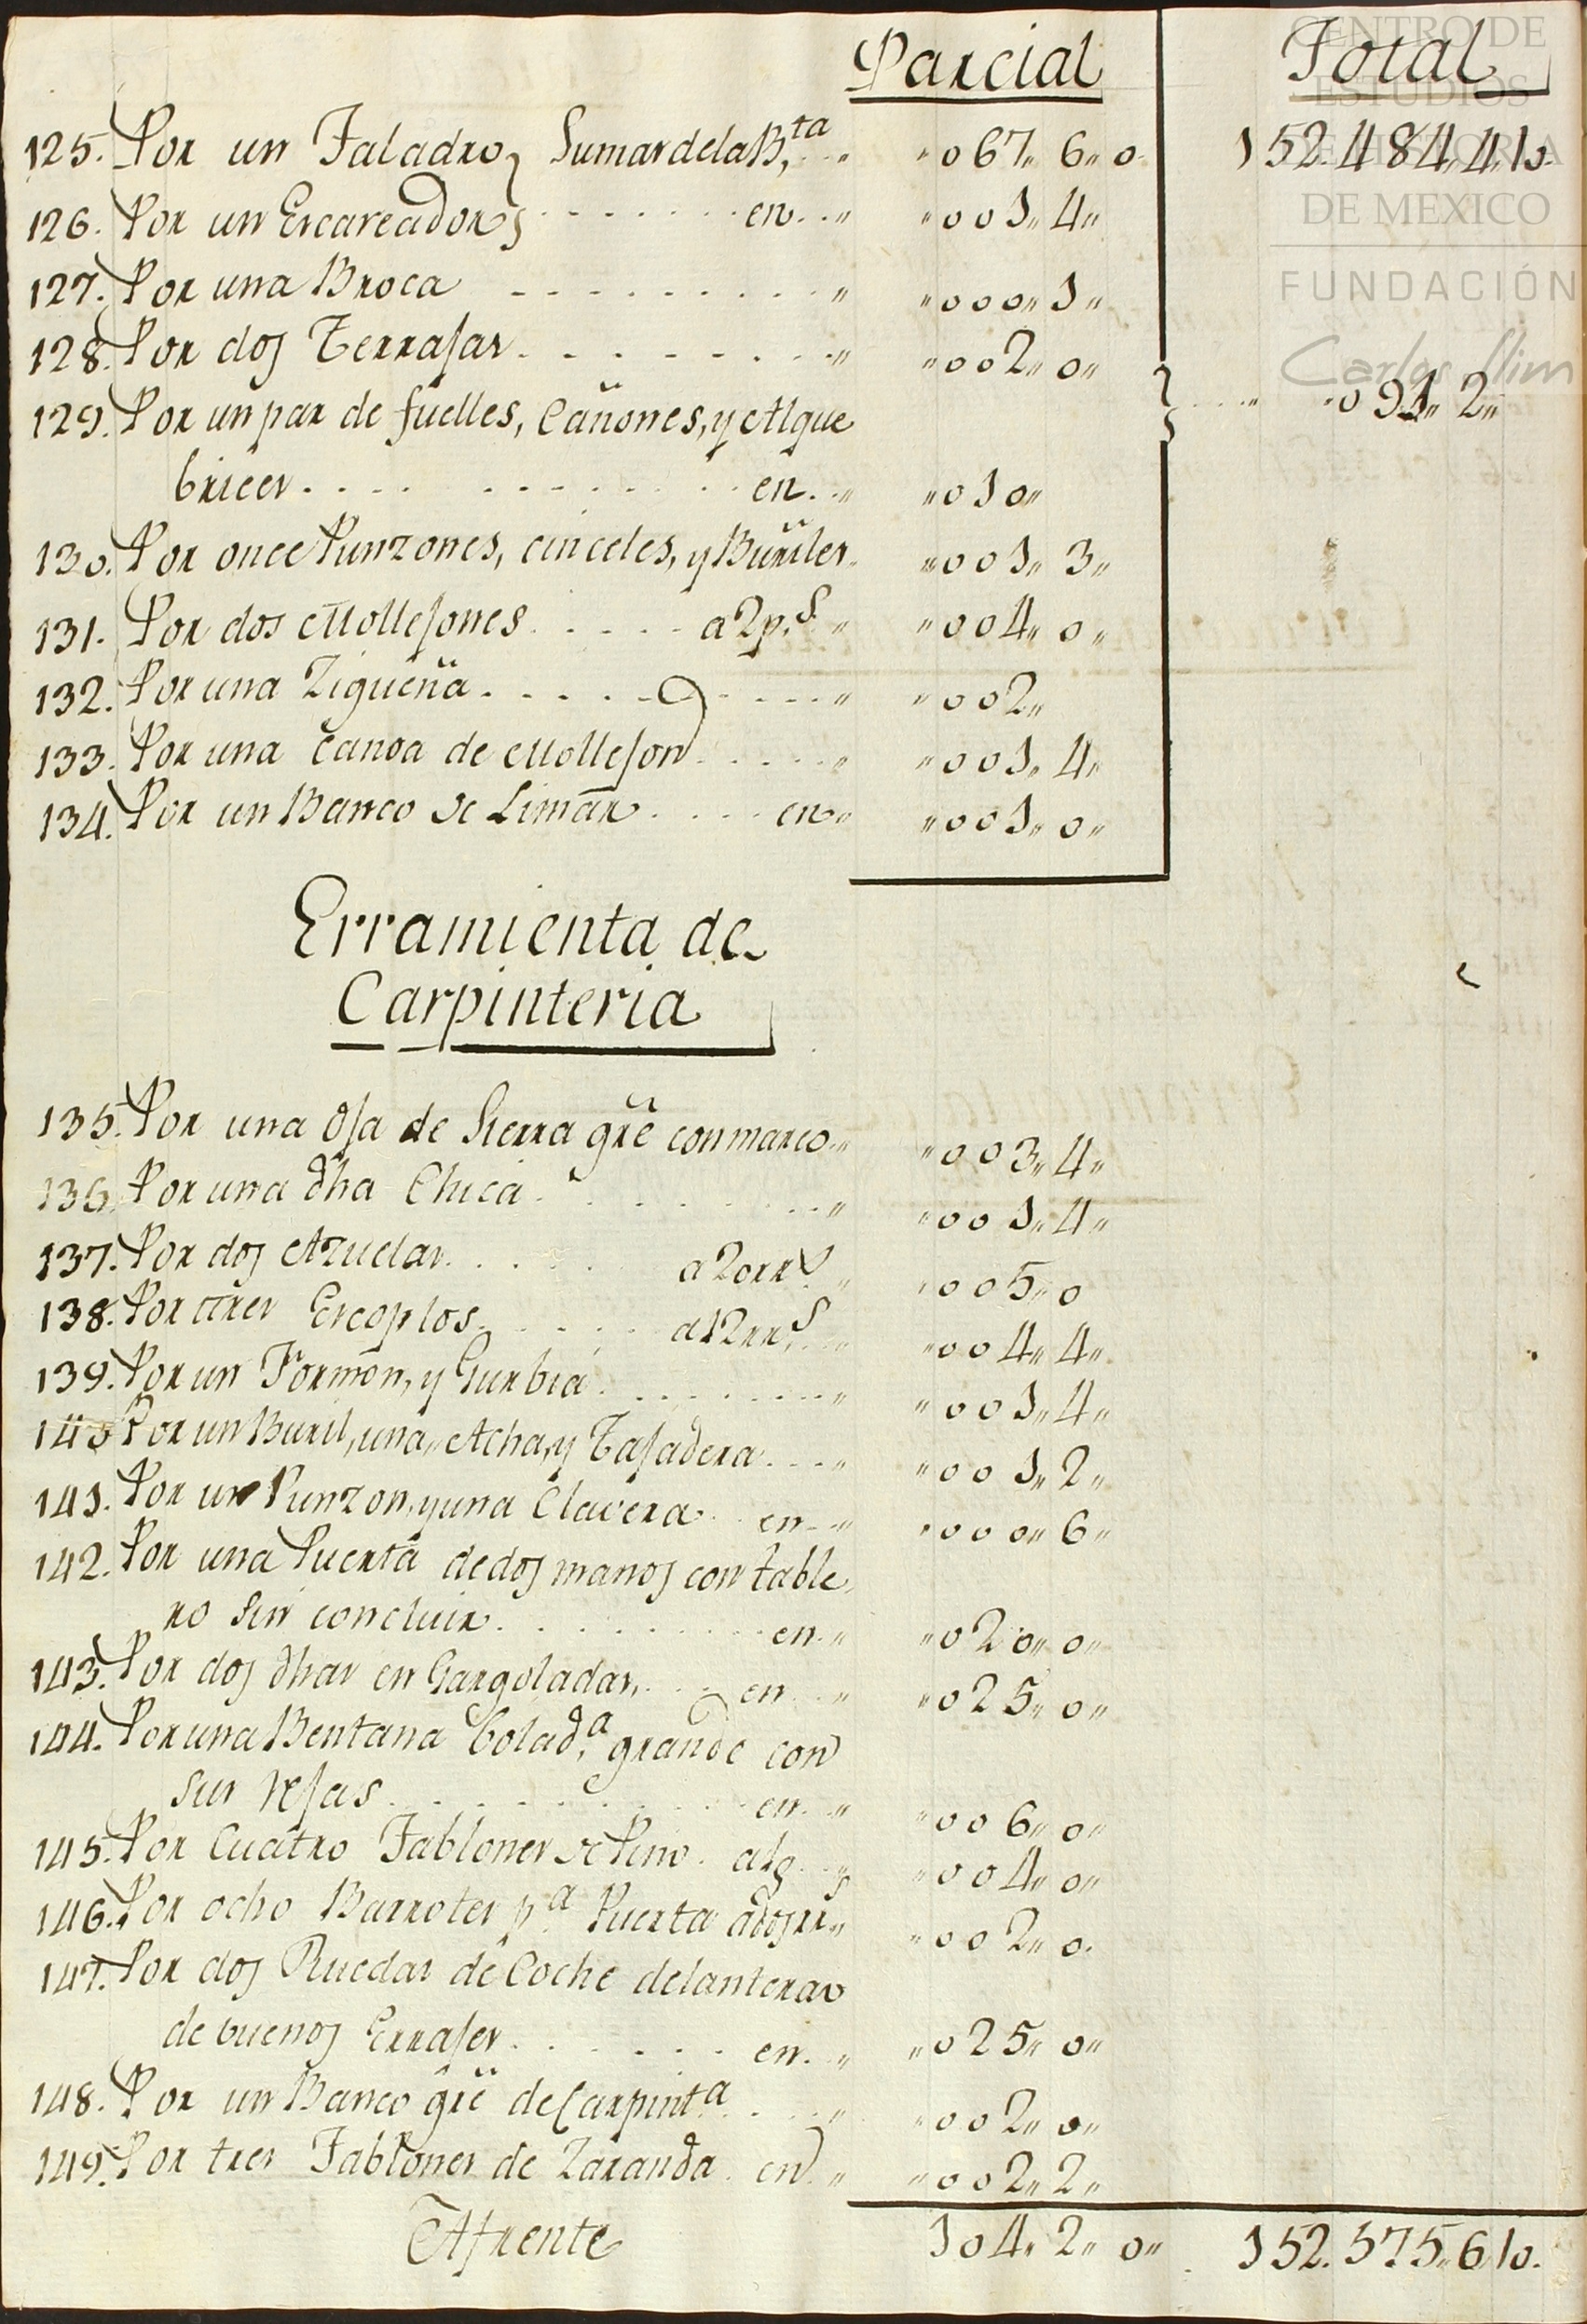 Parcial Total
CENTRO DE
ESTUDIOS
DE HISTORIA
DE MEXICO
FUNDACIÓN
Carlos Slim
125. Por un Taladro, Sumas dela B,ta „ „067„ 6„ 0 152.484„4„10.
126. Por un Escareador en „ „001„ 4„
127. Por una Broca „ „000„ 1„
128. Por dos Terrajas „ „002„ 0„
129. Por un par de fuelles, Cañones, y Alque
brices en „ „010„ „091„ 2„
130. Por once Punzones, cinceles, y Buriles „001„ 3„
131. Por dos Mollejones a 2 p.s „ „004„ 0„
132. Por una Zigueña „ „002„
133. Por una Canoa de Mollejon „ „001„ 4„
134. Por un Banco de Limar en „ „001„ 0„
Erramienta de
Carpinteria
135. Por una Oja de Sierra gre con marco „ „003„ 4„
136. Por una dha Chica „ „001„ 4„
137. Por dos Azuelas a 20 rr.s „ „005„ 0
138. Por tres Escoplos a 12 rr.s „ „004„ 4„
139. Por un Formon, y Gurbia „ „001„ 4„
140. Por un Buril, una„ Acha, y Tajadera „ „001„ 2„
141. Por un Punzon, y una Clavera en „ „000„ 6„
142. Por una Puerta de dos manos con table
ro sin concluir en „ „020„ 0„
143. Por dos dhas en Gargoladas, en „ „025„ 0„
144. Por una Bentana bolad,a grande con
sus rejas en „ „006„ 0„
145. Por Cuatro Tablones de Pino a 1 p s „004„ 0„
146. Por ocho Barrotes p.a Puerta a dos rr.s „002„ 0.
147. Por dos Ruedas de Coche delanteras
de buenos Errajes en „ „025„ 0„
148. Por un Banco gre de Carpint.a „ „002„ 0„
149. Por tres Tablones de Zaranda en „ „002„ 2„
Afrente 104„ 2„ 0„ 152.575„6„10.